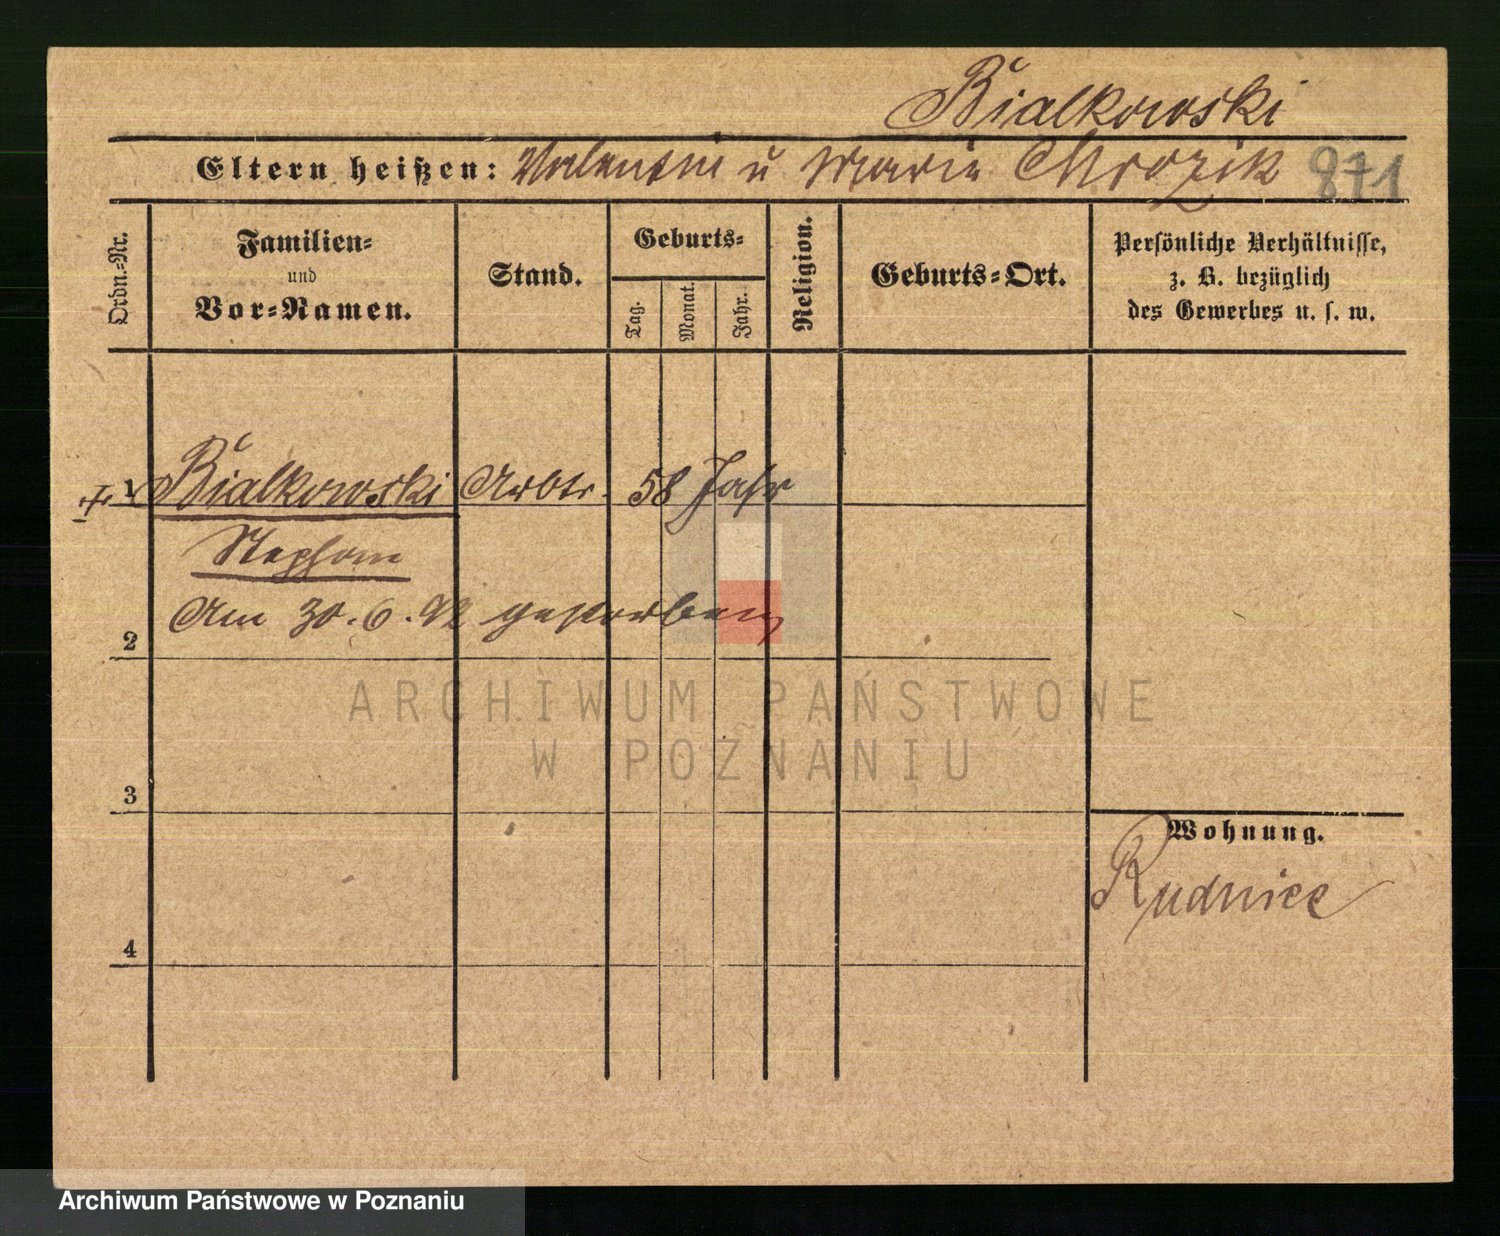 Bialkowski
Eltern heißen: Valentin u Marie Mrozik 871
Ordn.-Nr.
Familien-
und
Vor-Namen.
Stand.
Geburts-
Tag.
Monat.
Jahr.
Religion.
Geburts-Ort.
Persönliche Verhältnisse,
z. B. bezüglich
des Gewerbes u. s. w.
1 Bialkowski Arbtr. 58 Jahr
Stephan
Am 30.6.92 gestorben
2
ARCHIWUM PAŃSTWOWE
W POZNANIU
3
Wohnung.
Rudnicc
4
Archiwum Państwowe w Poznaniu